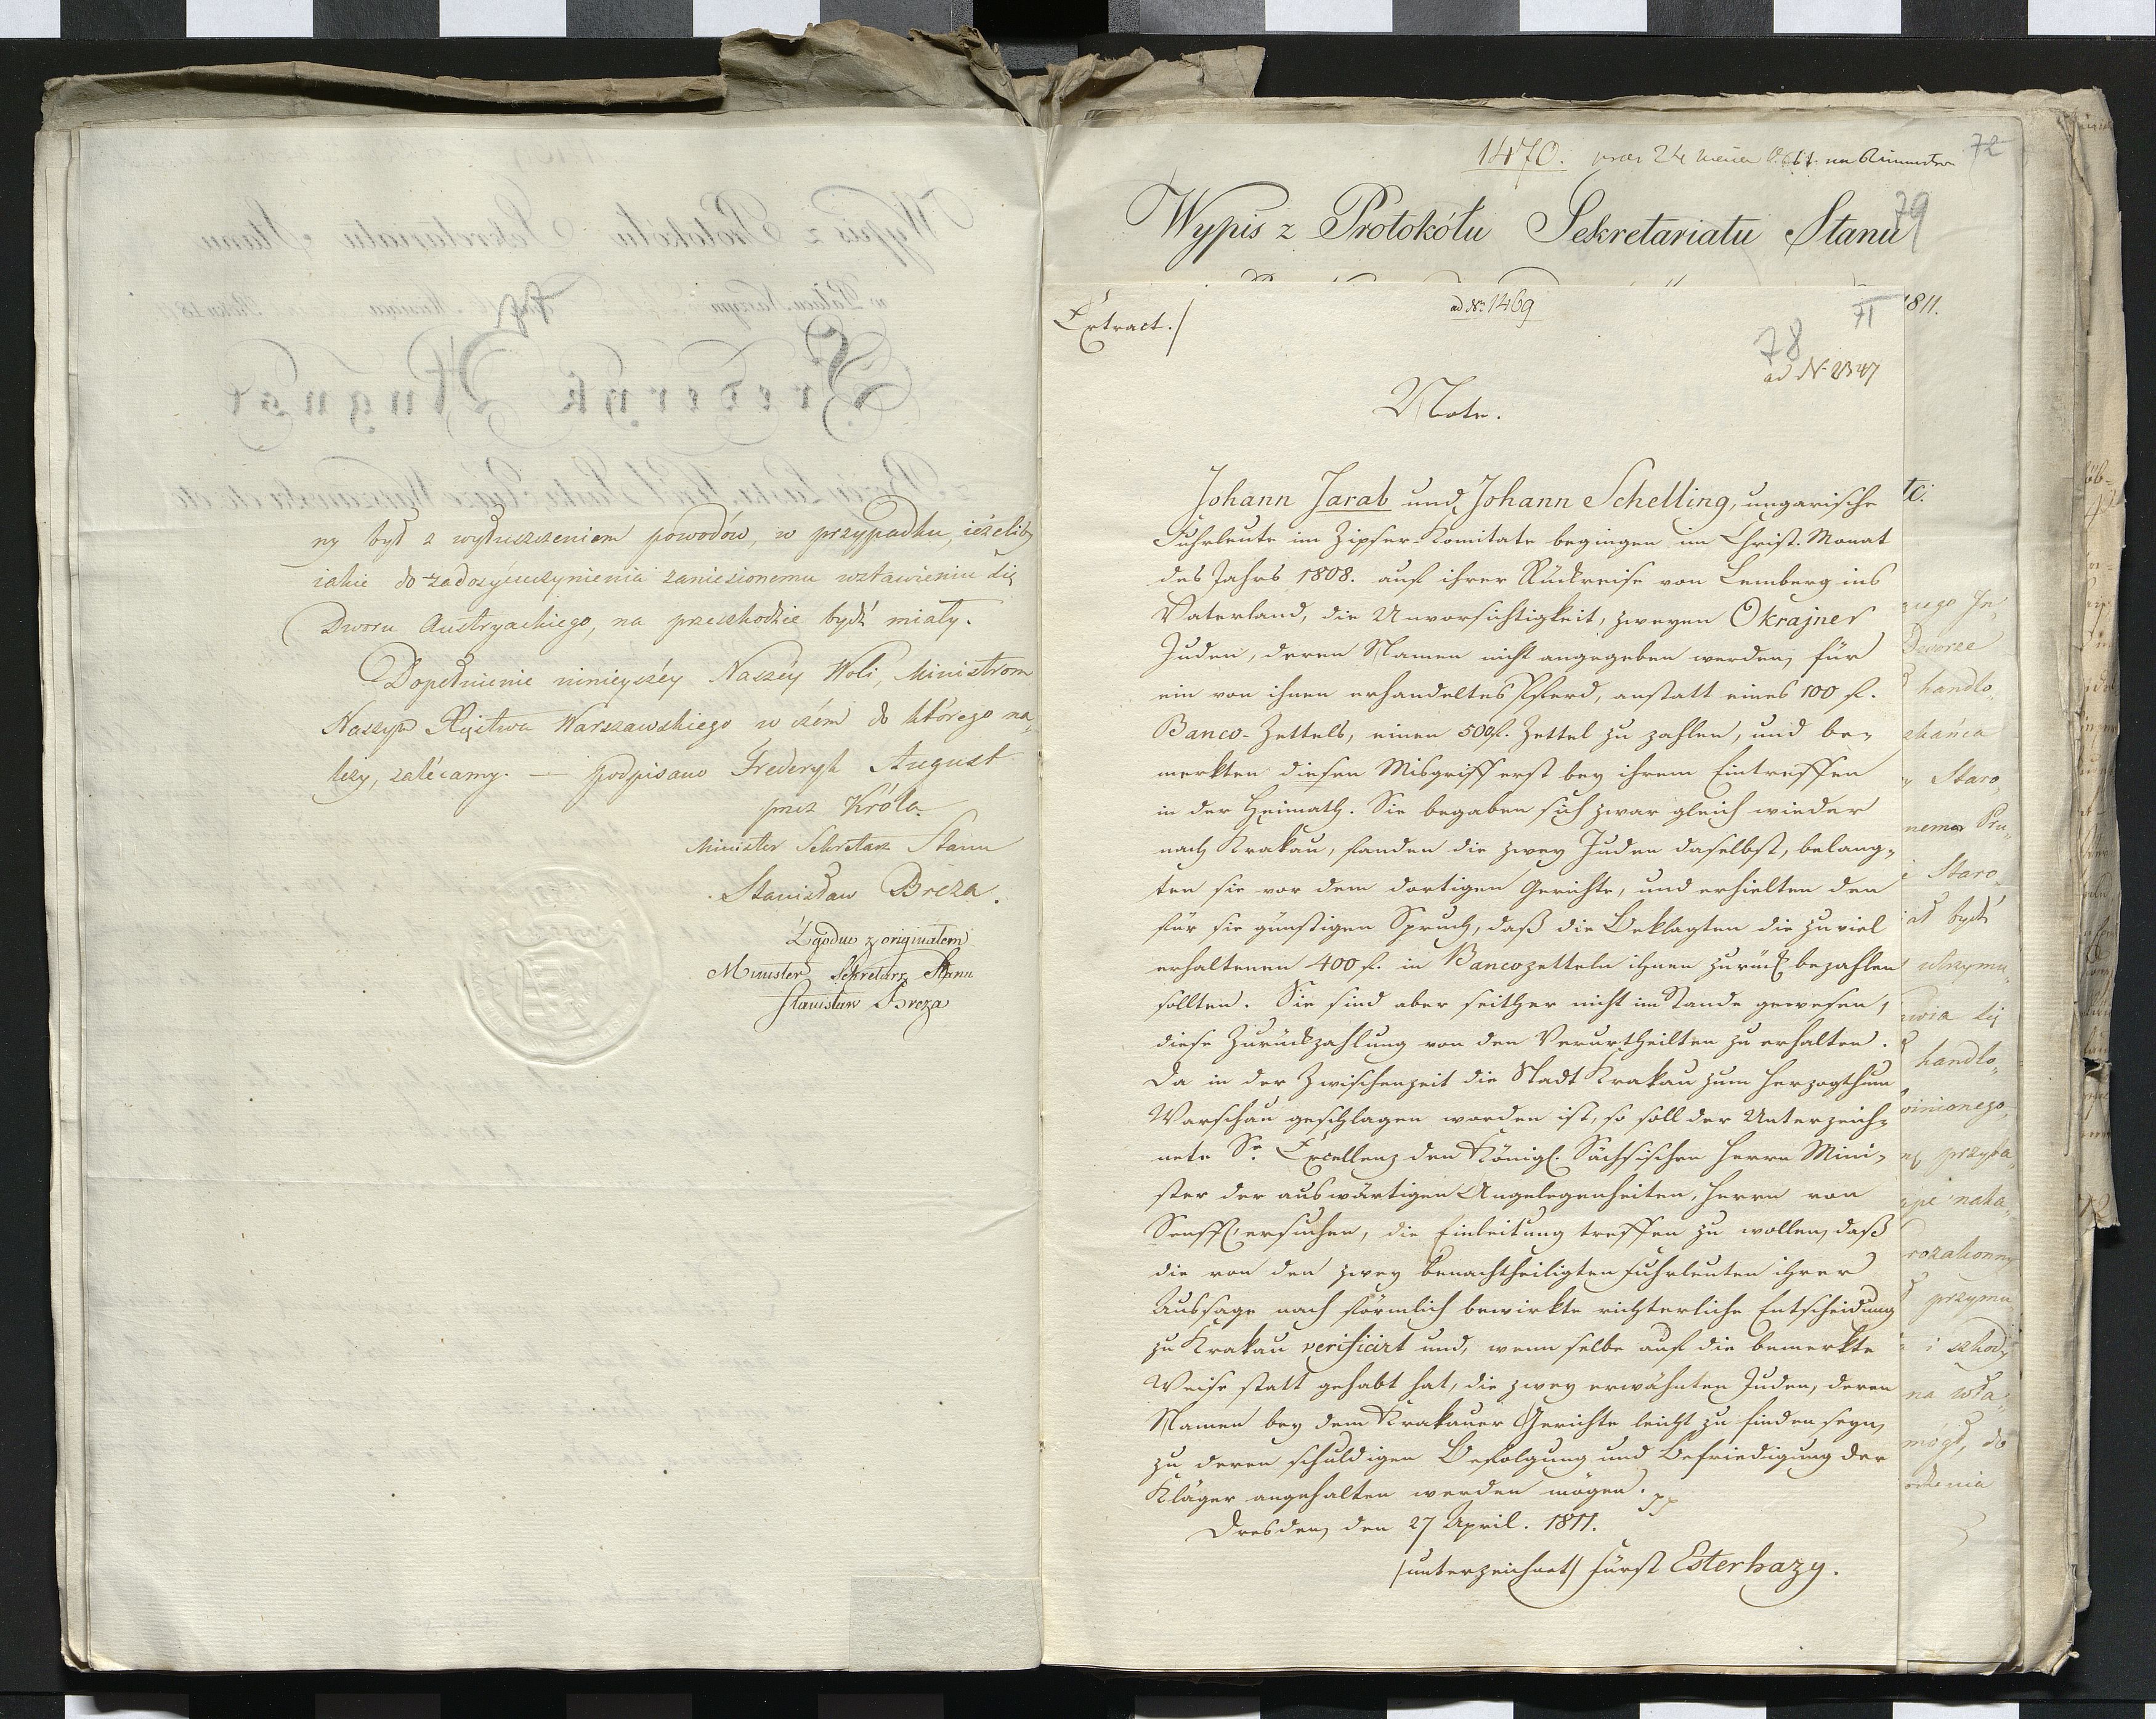 ny był z wyłuszczeniem powodów, w przypadku, ieżeliby
iakie do zadosyćuczynienia zaniesionemu wstawieniu się
Dworu Austryackiego, na przeszkodzie bydź miały.
Dopełnienie ninieyszéy Naszéy Woli, Ministrom
Naszym Xięstwa Warszawskiego w czém do którego na„
leży, zalécamy. — podpisano Frederyk August
przez Króla
Minister Sekretarz Stanu
Stanisław Breza.
Zgodno z originałem
Minister Sekretarz Stanu
Stanisław Breza
1470.
72
Wypis z Protokółu Sekretariatu Stanu
79
Extract./
ad Nr 1469
71
1811.
78
ad N 2347
Note.
Johann Jarab und Johann Schelling, ungarische
tc.
Fuhrleute im Zipser-Komitate begingen im Christ-Monat
des Jahrs 1808. auf ihrer Rückreise von Lemberg ins
Vaterland, die Unvorsichtigkeit, zweyen Okrajner
Juden, deren Namen nicht angegeben werden, für
ein von ihnen erhandeltes Pferd, anstatt eines 100 f.
Banco-Zettels, einen 500f. Zettel zu zahlen, und be„
merkten diesen Misgriff erst bey ihrem Eintreffen
in der Heimath. Sie begaben sich zwar gleich wieder
nach Krakau, fanden die zwey Juden daselbst, belang„
ten sie vor dem dortigen Gerichte, und erhielten den
für sie günstigen Spruch, daß die Beklagten die zuviel
erhaltenen 400 f. in Bancozetteln ihnen zurück bezahlen
sollten. Sie sind aber seither nicht im Stande gewesen,
diese Zurückzahlung von den Verurtheilten zu erhalten.
Da in der Zwischenzeit die Stadt Krakau zum Herzogthum
Warschau geschlagen worden ist, so soll der Unterzeich„
nete Sr Excellenz den Königl. Sächsischen Herrn Mini„
ster der auswärtigen Angelegenheiten, Herrn von
Senfft ersuchen, die Einleitung treffen zu wollen, daß
die von den zwey benachtheiligten Fuhrleuten ihrer
Aussage nach förmlich bewirkte richterliche Entscheidung
zu Krakau verificirt und, wenn selbe auf die bemerkte
Weise statt gehabt hat, die zwey erwähnten Juden, deren
Namen bey dem Krakauer Gerichte leicht zu finden seyn,
zu deren schuldigen Befolgung und Befriedigung der
Kläger angehalten werden mögen.
Dresden, den 27 April. 1811.
/unterzeichnet/ Fürst Esterhazy.
Dworze
handlo„
Staro„
Staro„
bydź
handlo„
przymu
na wła„
do